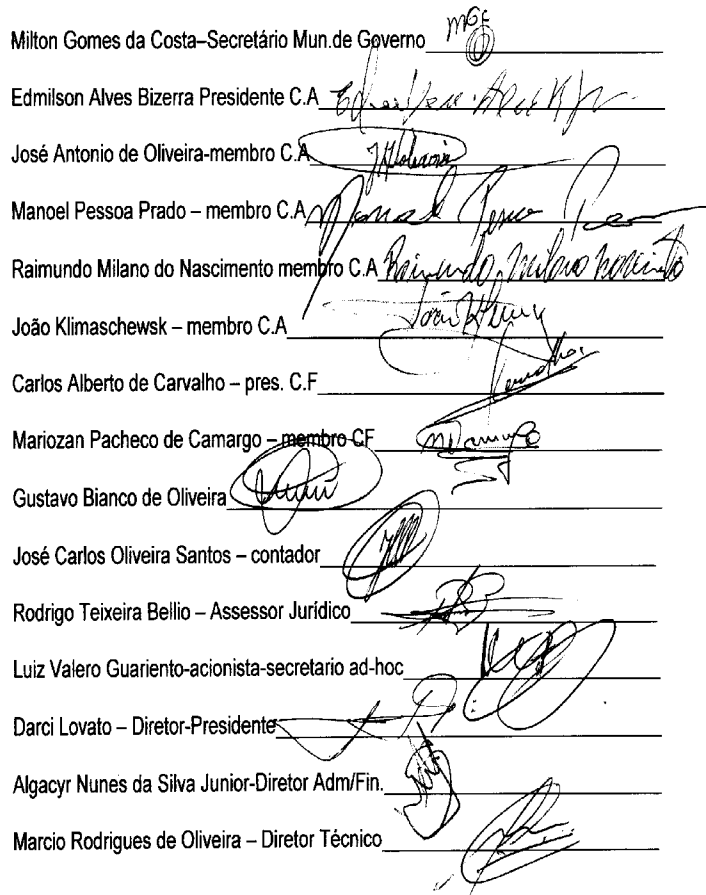 Milton Gomes da Costa–Secretário Mun.de Governo MGC
Edmilson Alves Bizerra Presidente C.A
José Antonio de Oliveira-membro C.A
Manoel Pessoa Prado – membro C.A Manoel Pessoa
Raimundo Milano do Nascimento membro C.A Raimundo Milano Nascimento
João Klimaschewsk – membro C.A João
Carlos Alberto de Carvalho – pres. C.F Carvalho
Mariozan Pacheco de Camargo – membro CF
Gustavo Bianco de Oliveira
José Carlos Oliveira Santos – contador
Rodrigo Teixeira Bellio – Assessor Jurídico
Luiz Valero Guariento-acionista-secretario ad-hoc
Darci Lovato – Diretor-Presidente
Algacyr Nunes da Silva Junior-Diretor Adm/Fin.
Marcio Rodrigues de Oliveira – Diretor Técnico